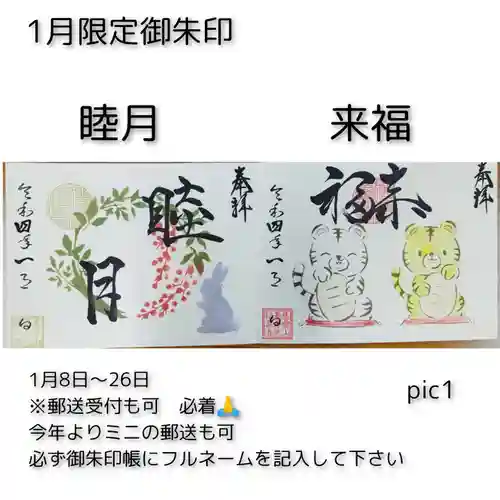 1月限定御朱印
睦月
来福
奉拝
睦月
令和四年一月
日
奉拝
来福
令和四年一月
日
1月8日～26日
※郵送受付も可　必着🙏
今年よりミニの郵送も可
必ず御朱印帳にフルネームを記入して下さい
pic1